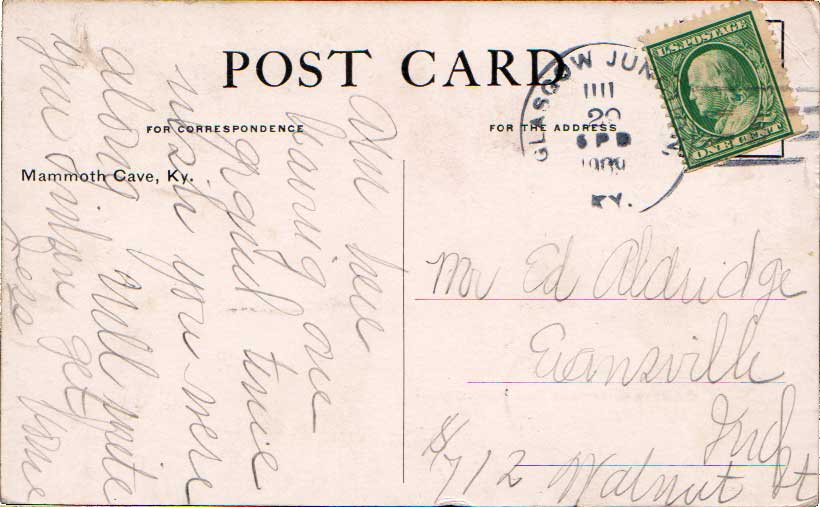 POST CARD
FOR CORRESPONDENCE
FOR THE ADDRESS
Mammoth Cave, Ky.
Am here
having one
grand time
wish you were
along will write
you when I get
home
Tess
GLASGOW JUN
20
6 PM
1909
KY.
U.S. POSTAGE
ONE CENT
Mr Ed Aldridge
Evansville
Ind
712 Walnut St